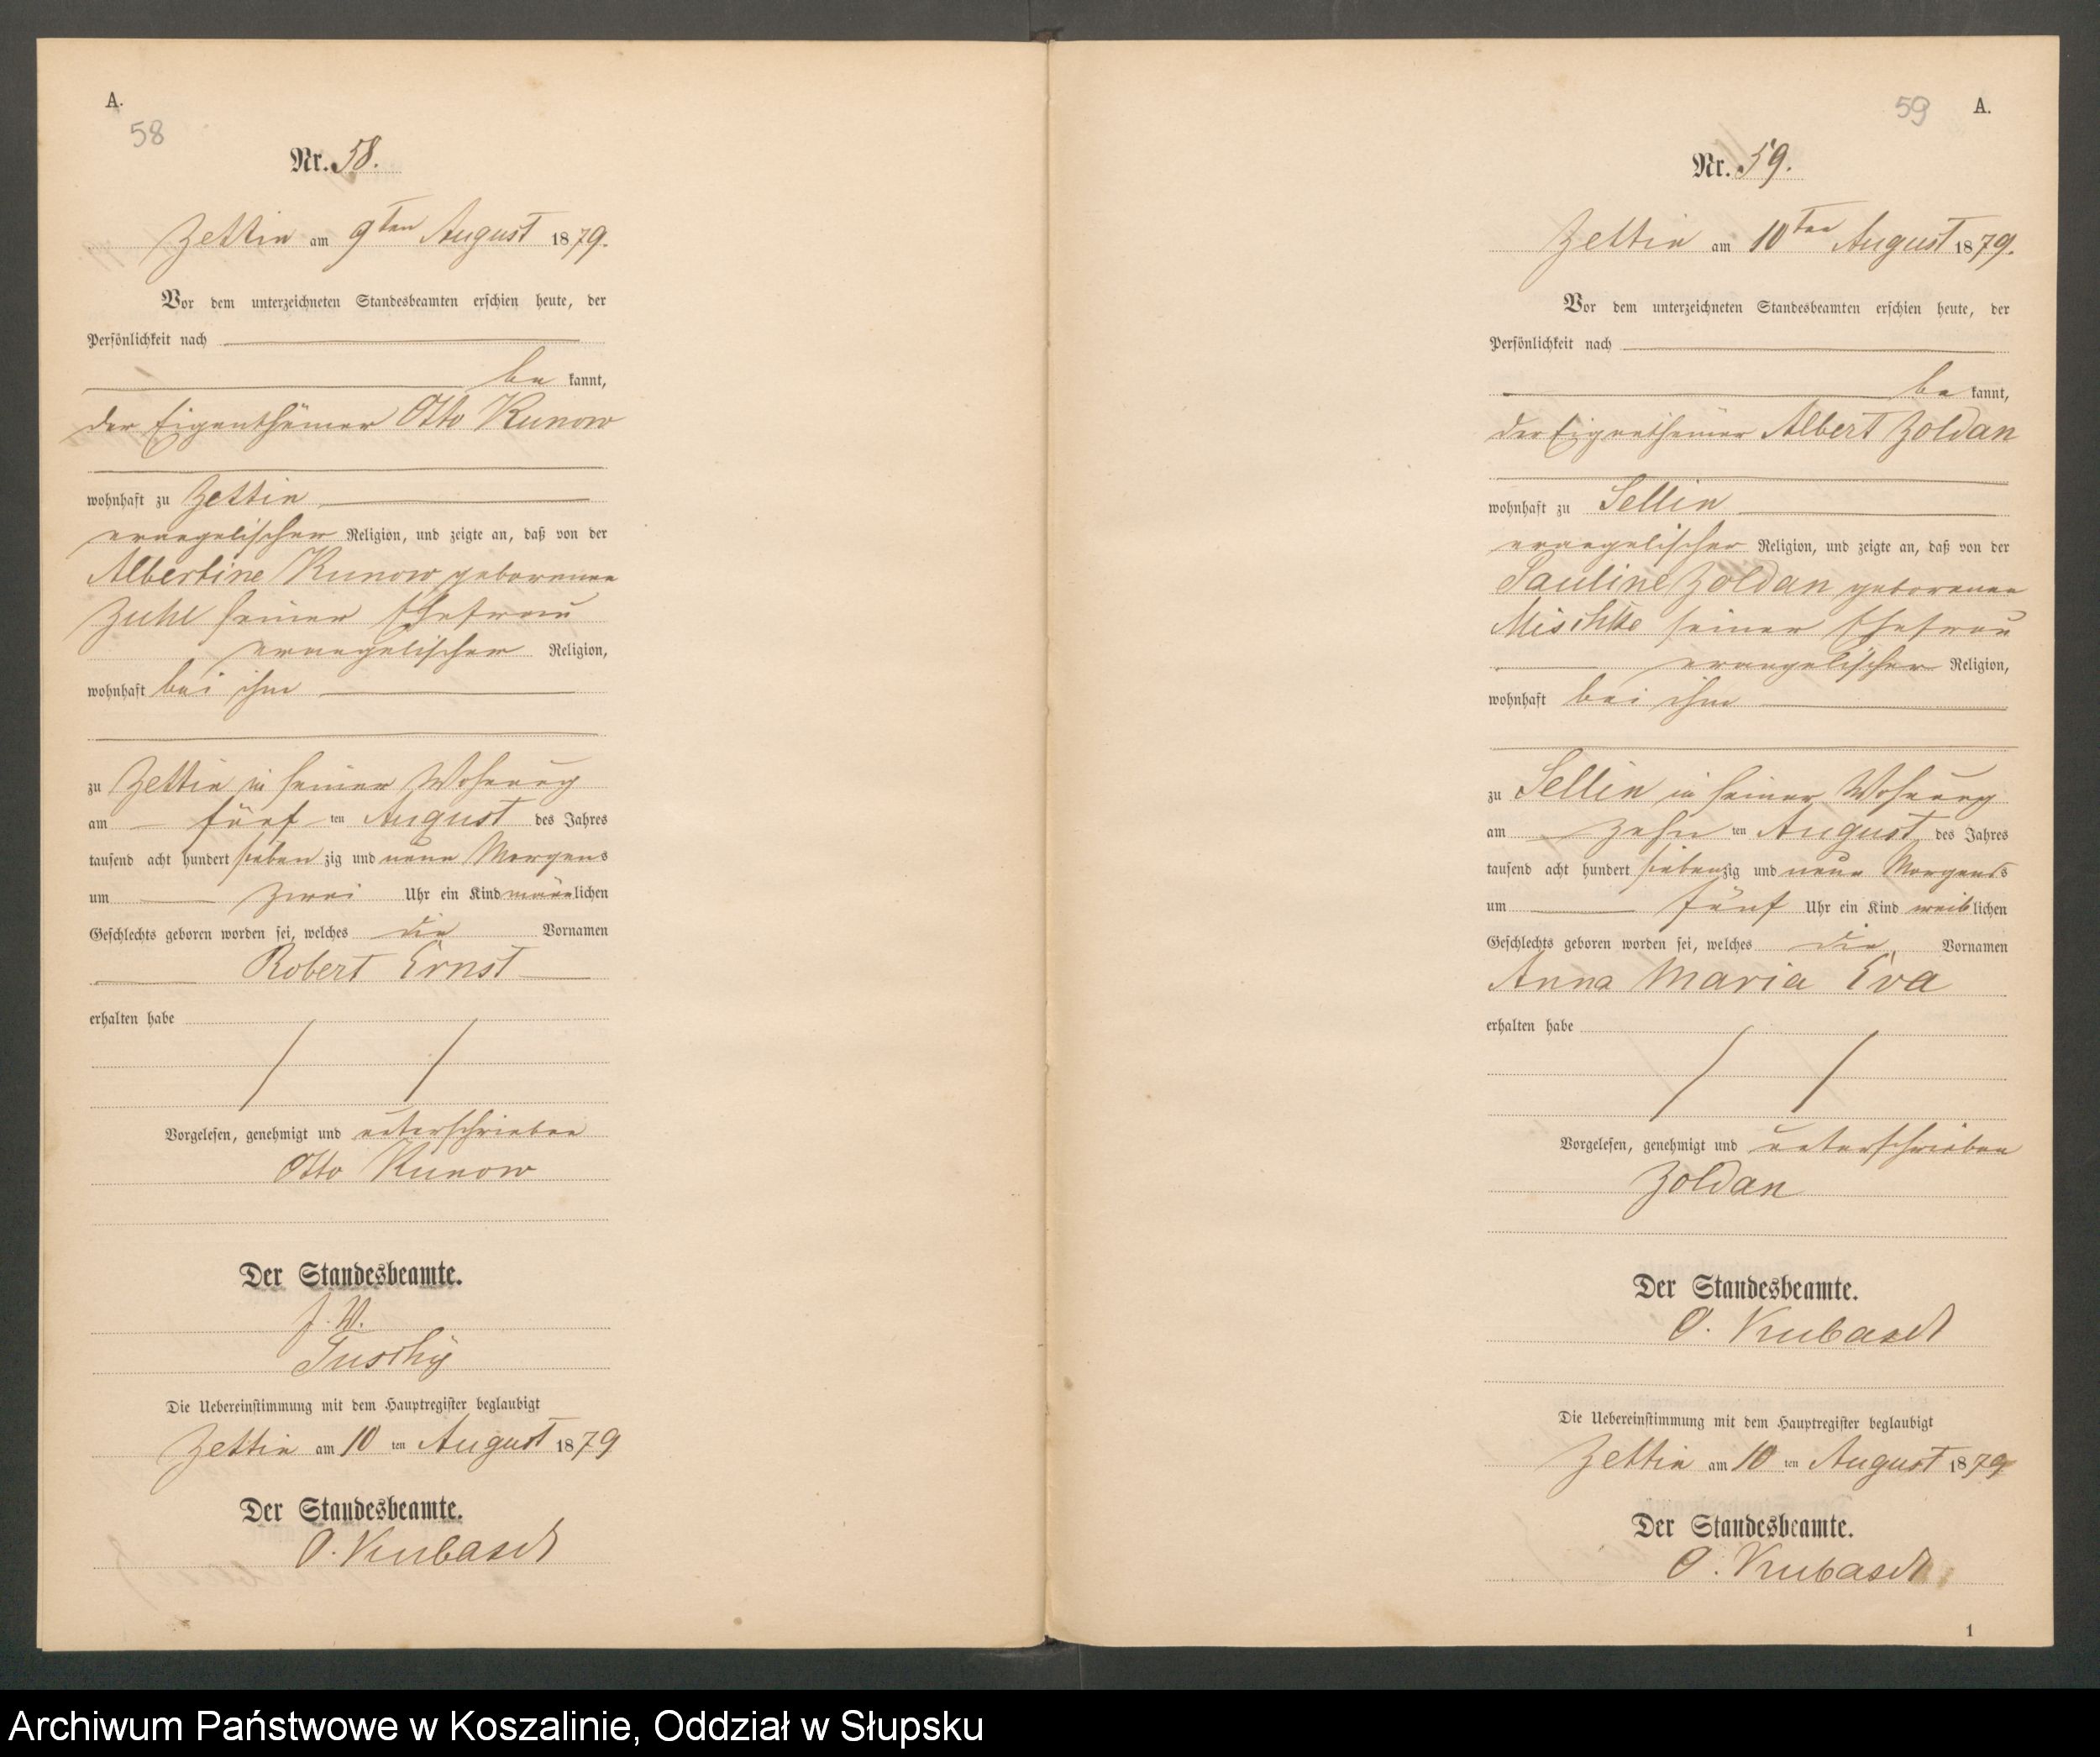 A.
58
Nr. 58.
Zettin am 9ten August 1879.
Vor dem unterzeichneten Standesbeamten erschien heute, der
Persönlichkeit nach
bekannt,
der Eigenthümer Otto Kunow
wohnhaft zu Zettin
evangelischer Religion, und zeigte an, daß von der
Albertine Kunow geborenen
Zuhl seiner Ehefrau
evangelischer Religion,
wohnhaft bei ihm
zu Zettin in seiner Wohnung
am fünf ten August des Jahres
tausend acht hundert siebenzig und neun Morgens
um zwei Uhr ein Kind männlichen
Geschlechts geboren worden sei, welches die Vornamen
Robert Ernst
erhalten habe
Vorgelesen, genehmigt und unterschrieben
Otto Kunow
Der Standesbeamte.
J. V.
Die Uebereinstimmung mit dem Hauptregister beglaubigt
Zettin am 10 ten August 1879
Der Standesbeamte.
O. Kubasch
59 A.
Nr. 59.
Zettin am 10ten August 1879.
Vor dem unterzeichneten Standesbeamten erschien heute, der
Persönlichkeit nach
bekannt,
der Eigenthümer Albert Zoldan
wohnhaft zu Sellin
evangelischer Religion, und zeigte an, daß von der
Pauline Zoldan geborenen
Mischke seiner Ehefrau
evangelischer Religion,
wohnhaft bei ihm
zu Sellin in seiner Wohnung
am zehn ten August des Jahres
tausend acht hundert siebenzig und neun Morgens
um fünf Uhr ein Kind weiblichen
Geschlechts geboren worden sei, welches die Vornamen
Anna Maria Eva
erhalten habe
Vorgelesen, genehmigt und unterschrieben
Zoldan
Der Standesbeamte.
O. Kubasch
Die Uebereinstimmung mit dem Hauptregister beglaubigt
Zettin am 10 ten August 1879
Der Standesbeamte.
O. Kubasch
1
Archiwum Państwowe w Koszalinie, Oddział w Słupsku